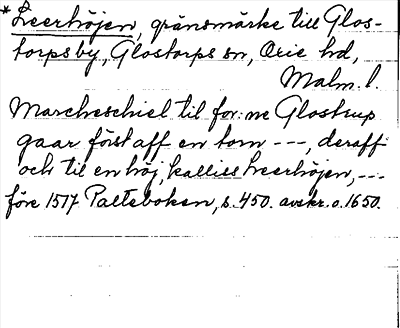 * Leerhöjen, gränsmärke till Glos-
torps by, Glostorps sn, Oxie hd,
Malm. l.
Marcheschiel til for:ne Glostrup
gaar först aff en torn ---, deraff
och til en höj, kalliss Leerhöjen, ---
före 1517 Palteboken, s. 450. avskr. o. 1650.